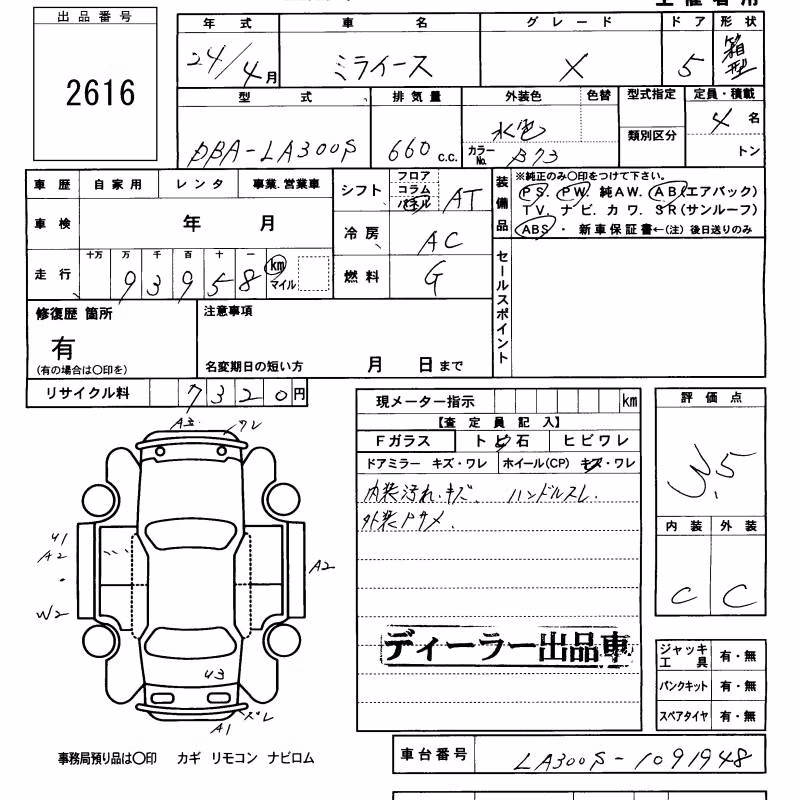 出品番号
2616
年式 車名 グレード ドア 形状
24/4月 ミライース X 5 箱型
型式 排気量 外装色 色替 型式指定 定員・積載
類別区分
DBA-LA300S 660 c.c. 水色 カラーNo. B73 4名
トン
車歴 自家用 レンタ 事業.営業車
車検 年 月
走行 十万 万 千 百 十 一
9 3 9 5 8 km マイル
シフト フロア コラム パネル AT
冷房 AC
燃料 G
装備品
※純正のみ〇印をつけて下さい。
PS. PW. 純AW. AB(エアバック)
TV. ナビ. カワ. SR(サンルーフ)
ABS・ 新車保証書←(注) 後日送りのみ
セールスポイント
修復歴 箇所
有
(有の場合は〇印を)
注意事項
名変期日の短い方 月 日まで
リサイクル料 7320円
現メーター指示 km
【査定員記入】
Fガラス トビ石 ヒビワレ
ドアミラー キズ・ワレ ホイール(CP) キズ・ワレ
内装汚れ.キズ. ハンドルスレ.
外装ドサメ.
ディーラー出品車
評価点
3.5
内装 外装
C C
ジャッキ工具 有・無
パンクキット 有・無
スペアタイヤ 有・無
A3 ワレ
U1
A2
A2
W2
U3
ズレ
A1
事務局預り品は〇印 カギ リモコン ナビロム
車台番号 LA300S-1091948